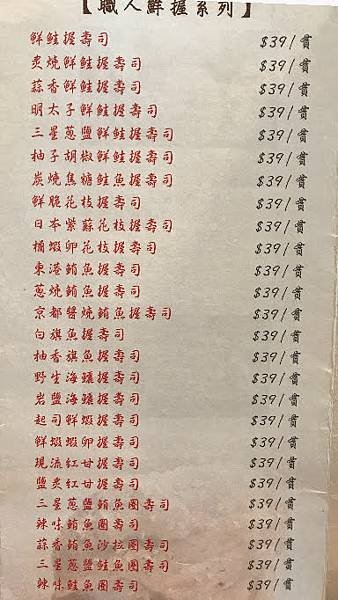 【職人鮮握系列】
鮮鮭握壽司 $39/貫
炙燒鮮鮭握壽司 $39/貫
蒜香鮮鮭握壽司 $39/貫
明太子鮮鮭握壽司 $39/貫
三星蔥鹽鮮鮭握壽司 $39/貫
柚子胡椒鮮鮭握壽司 $39/貫
炭燒焦糖鮭魚握壽司 $39/貫
鮮脆花枝握壽司 $39/貫
日本紫蘇花枝握壽司 $39/貫
橘蝦卵花枝握壽司 $39/貫
東港鮪魚握壽司 $39/貫
蔥燒鮪魚握壽司 $39/貫
京都醬燒鮪魚握壽司 $39/貫
白旗魚握壽司 $39/貫
柚香旗魚握壽司 $39/貫
野生海鱺握壽司 $39/貫
岩鹽海鱺握壽司 $39/貫
起司鮮蝦握壽司 $39/貫
鮮蝦蝦卵握壽司 $39/貫
現流紅甘握壽司 $39/貫
鹽炙紅甘握壽司 $39/貫
三星蔥鹽鮪魚圈壽司 $39/貫
辣味鮪魚圈壽司 $39/貫
蒜香鮪魚沙拉圈壽司 $39/貫
三星蔥鹽鮭魚圈壽司 $39/貫
辣味鮭魚圈壽司 $39/貫